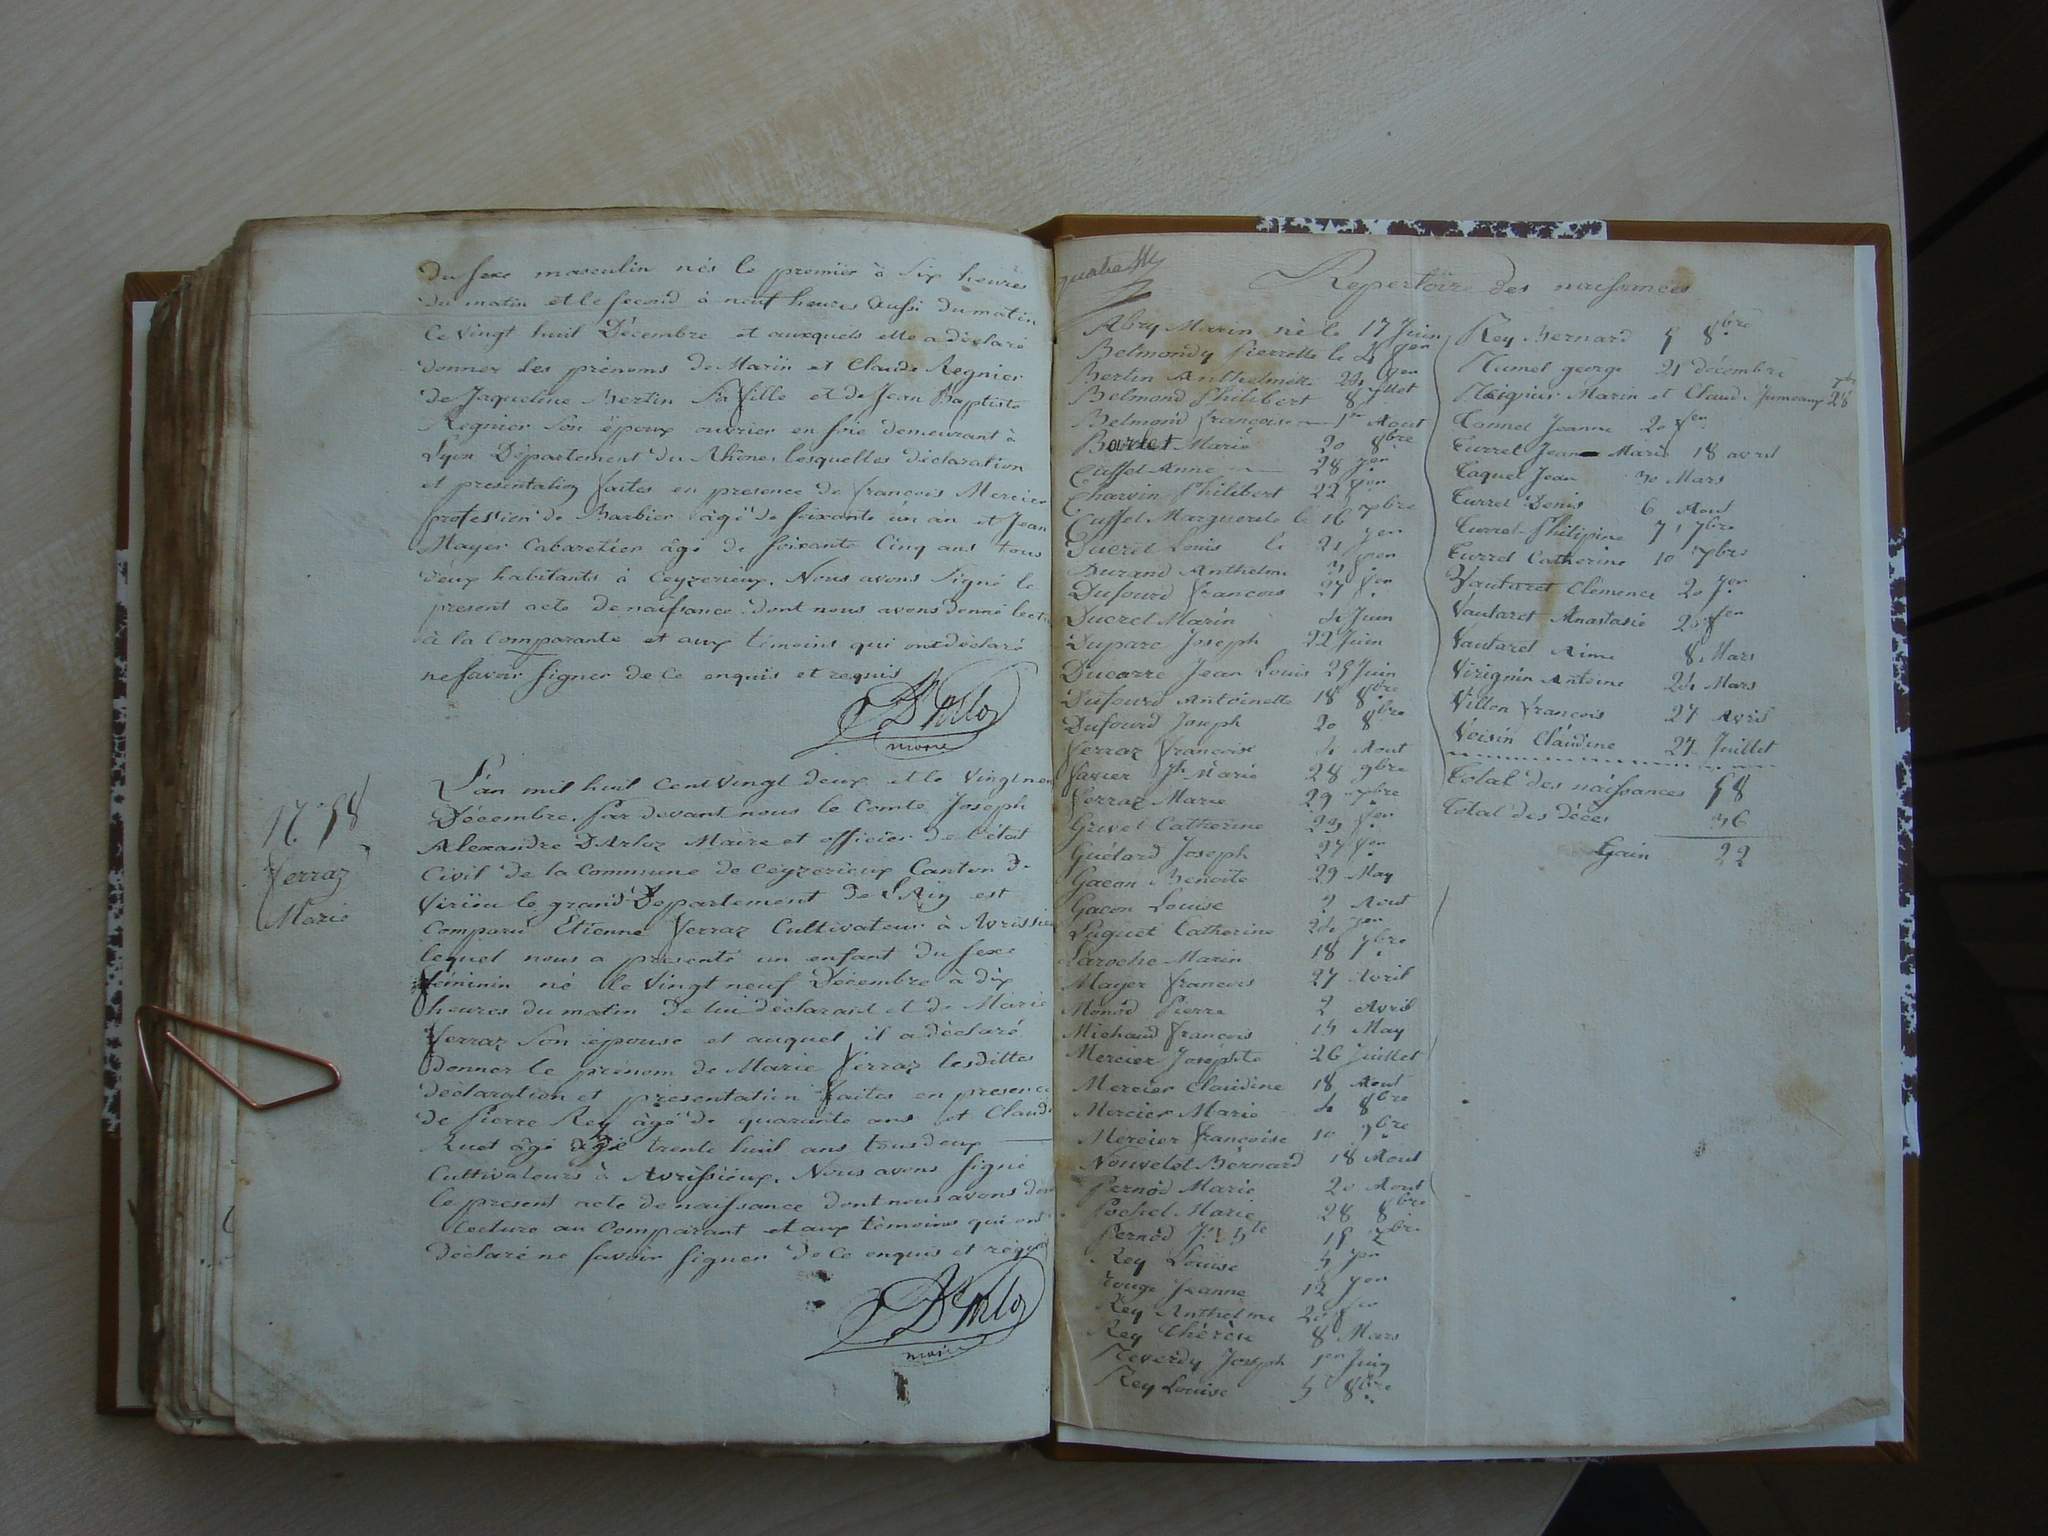 du sexe masculin nés le premier à Six heures
du matin et le second à neuf heures aussi du matin
Ce vingt huit Décembre et auxquels elle a déclaré
donner les prénoms de Marin et Claude Regnier
de Jaqueline Bertin Sa fille et de Jean Baptiste
Regnier Son époux ouvrier en soie demeurant à
Lyon Département du Rhône, lesquelles déclaration
et presentation faites en presence de françois Mercier
profession de Barbier âgé de soixante un an et Jean
Mayer Cabaretier âgé de soixante Cinq ans tous
deux habitants à Ceyzerieux. Nous avons Signé le
present acte de naissance dont nous avons donné lect
à la Comparante et aux témoins qui ont déclaré
ne savoir signer de ce enquis et requis
maire
N.° 58
Ferraz
Marie
L'an mil huit Cent vingt deux et le vingt neuf
Décembre, par devant nous le Comte Joseph
Alexandre D'Arloz Maire et officier de l'état
Civil de la Commune de Ceyzerieux Canton de
Virieu le grand Département de L'Ain est
Comparu Etienne Ferraz Cultivateur à Avrissieu
lequel nous a presenté un enfant du sexe
féminin né le vingt neuf Décembre à dix
heures du matin de lui déclarant et de Marie
Ferraz Son épouse et auquel il a déclaré
donner le prénom de Marie Ferraz lesdittes
déclaration et presentation faites en presence
de Pierre Rey âgé de quarante ans et Claude
Ruet âgé trente huit ans tous deux
Cultivateurs à Avrissieux. Nous avons Signé
le present acte de naissance dont nous avons donné
lecture au Comparant et aux témoins qui ont
déclaré ne savoir signer de ce enquis et requis
maire
Repertoire des naissances
Abry Marin né le 17 Juin
Belmondy Pierrette le 4 Jer
Bertin Anthelmette 24
Belmond Philibert 8 Jllet
Belmond françoise 1er Aout
Barlet Marie 20 8bre
Cuffet Anne 28 Jer
Charvin Philibert 22 Jer
Cuffet Marguerite le 16 7bre
Ducret Louis le 21 Jer
Durand Anthelme Jer
Dufourd françois 27
Ducret Marin 4 Juin
Duparc Joseph 22 Juin
Ducarre Jean Louis 25 Juin
Dufourd Antoinette 18 8bre
Dufourd Joseph 20 8bre
Ferraz françoise 4 Aout
Favier Jh Marie 28 9bre
Ferraz Marie 29 Xbre
Grivel Catherine 23
Guélard Joseph 27
Gacon Benoite 29 May
Gacon Louise 2 Aout
Luguet Catherine 24
Laroche Marin 18
Mayer françois 27 Avril
Monod Pierre 2 Avril
Michaud françois 15 May
Mercier Josephte 26 Juillet
Mercier Claudine 18 Aout
Mercier Marie 4 8bre
Mercier françoise 10 9bre
Nouvelet Bernard 18 Aout
Pernod Marie 20 Aout
Pochet Marie 28 8bre
Pernod
Rey Louise 5 Jer
rouge Jeanne 12 Jer
Rey Anthelme 20
Rey Thérèse 8 Mars
Reverdy Joseph 1er Juin
Rey Louise 5 8bre
Rey Bernard 5 8bre
Rumel george 21 décembre
Reignier Marin et Claude Jumeaux 28
Tonnel Jeanne 20
Turrel Jeanne Marie 18 avril
Toquet Jean 30 Mars
Turrel Denis 6 Aout
Turrel Philipine 7 7bre
Turrel Catherine 10 7bre
Vautaret Clémence 20
Vautaret Anastasie 20
Vautaret Aimé 8 Mars
Virignin Antoine 24 Mars
Villon françois 27 Avril
Voisin Claudine 27 Juillet
Total des naissances 58
Total des décès 36
Gain 22